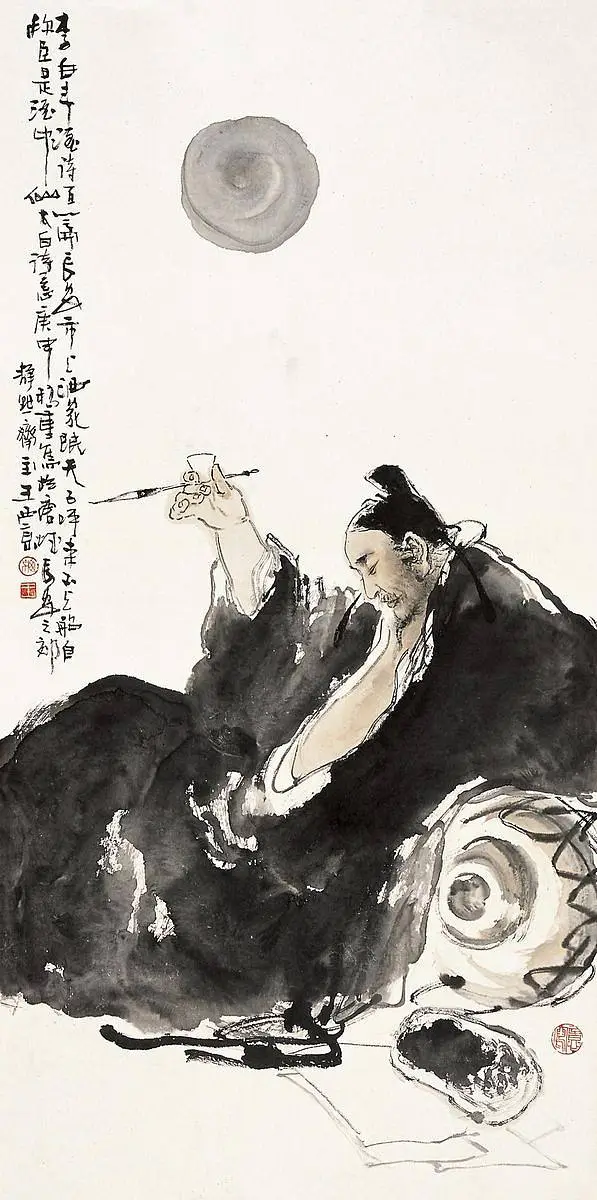 李白斗酒诗百篇長安市上酒家眠天子呼来不上船自
称臣是酒中仙太白诗意庚申重寫於唐城長安之郊
静齋主王西京